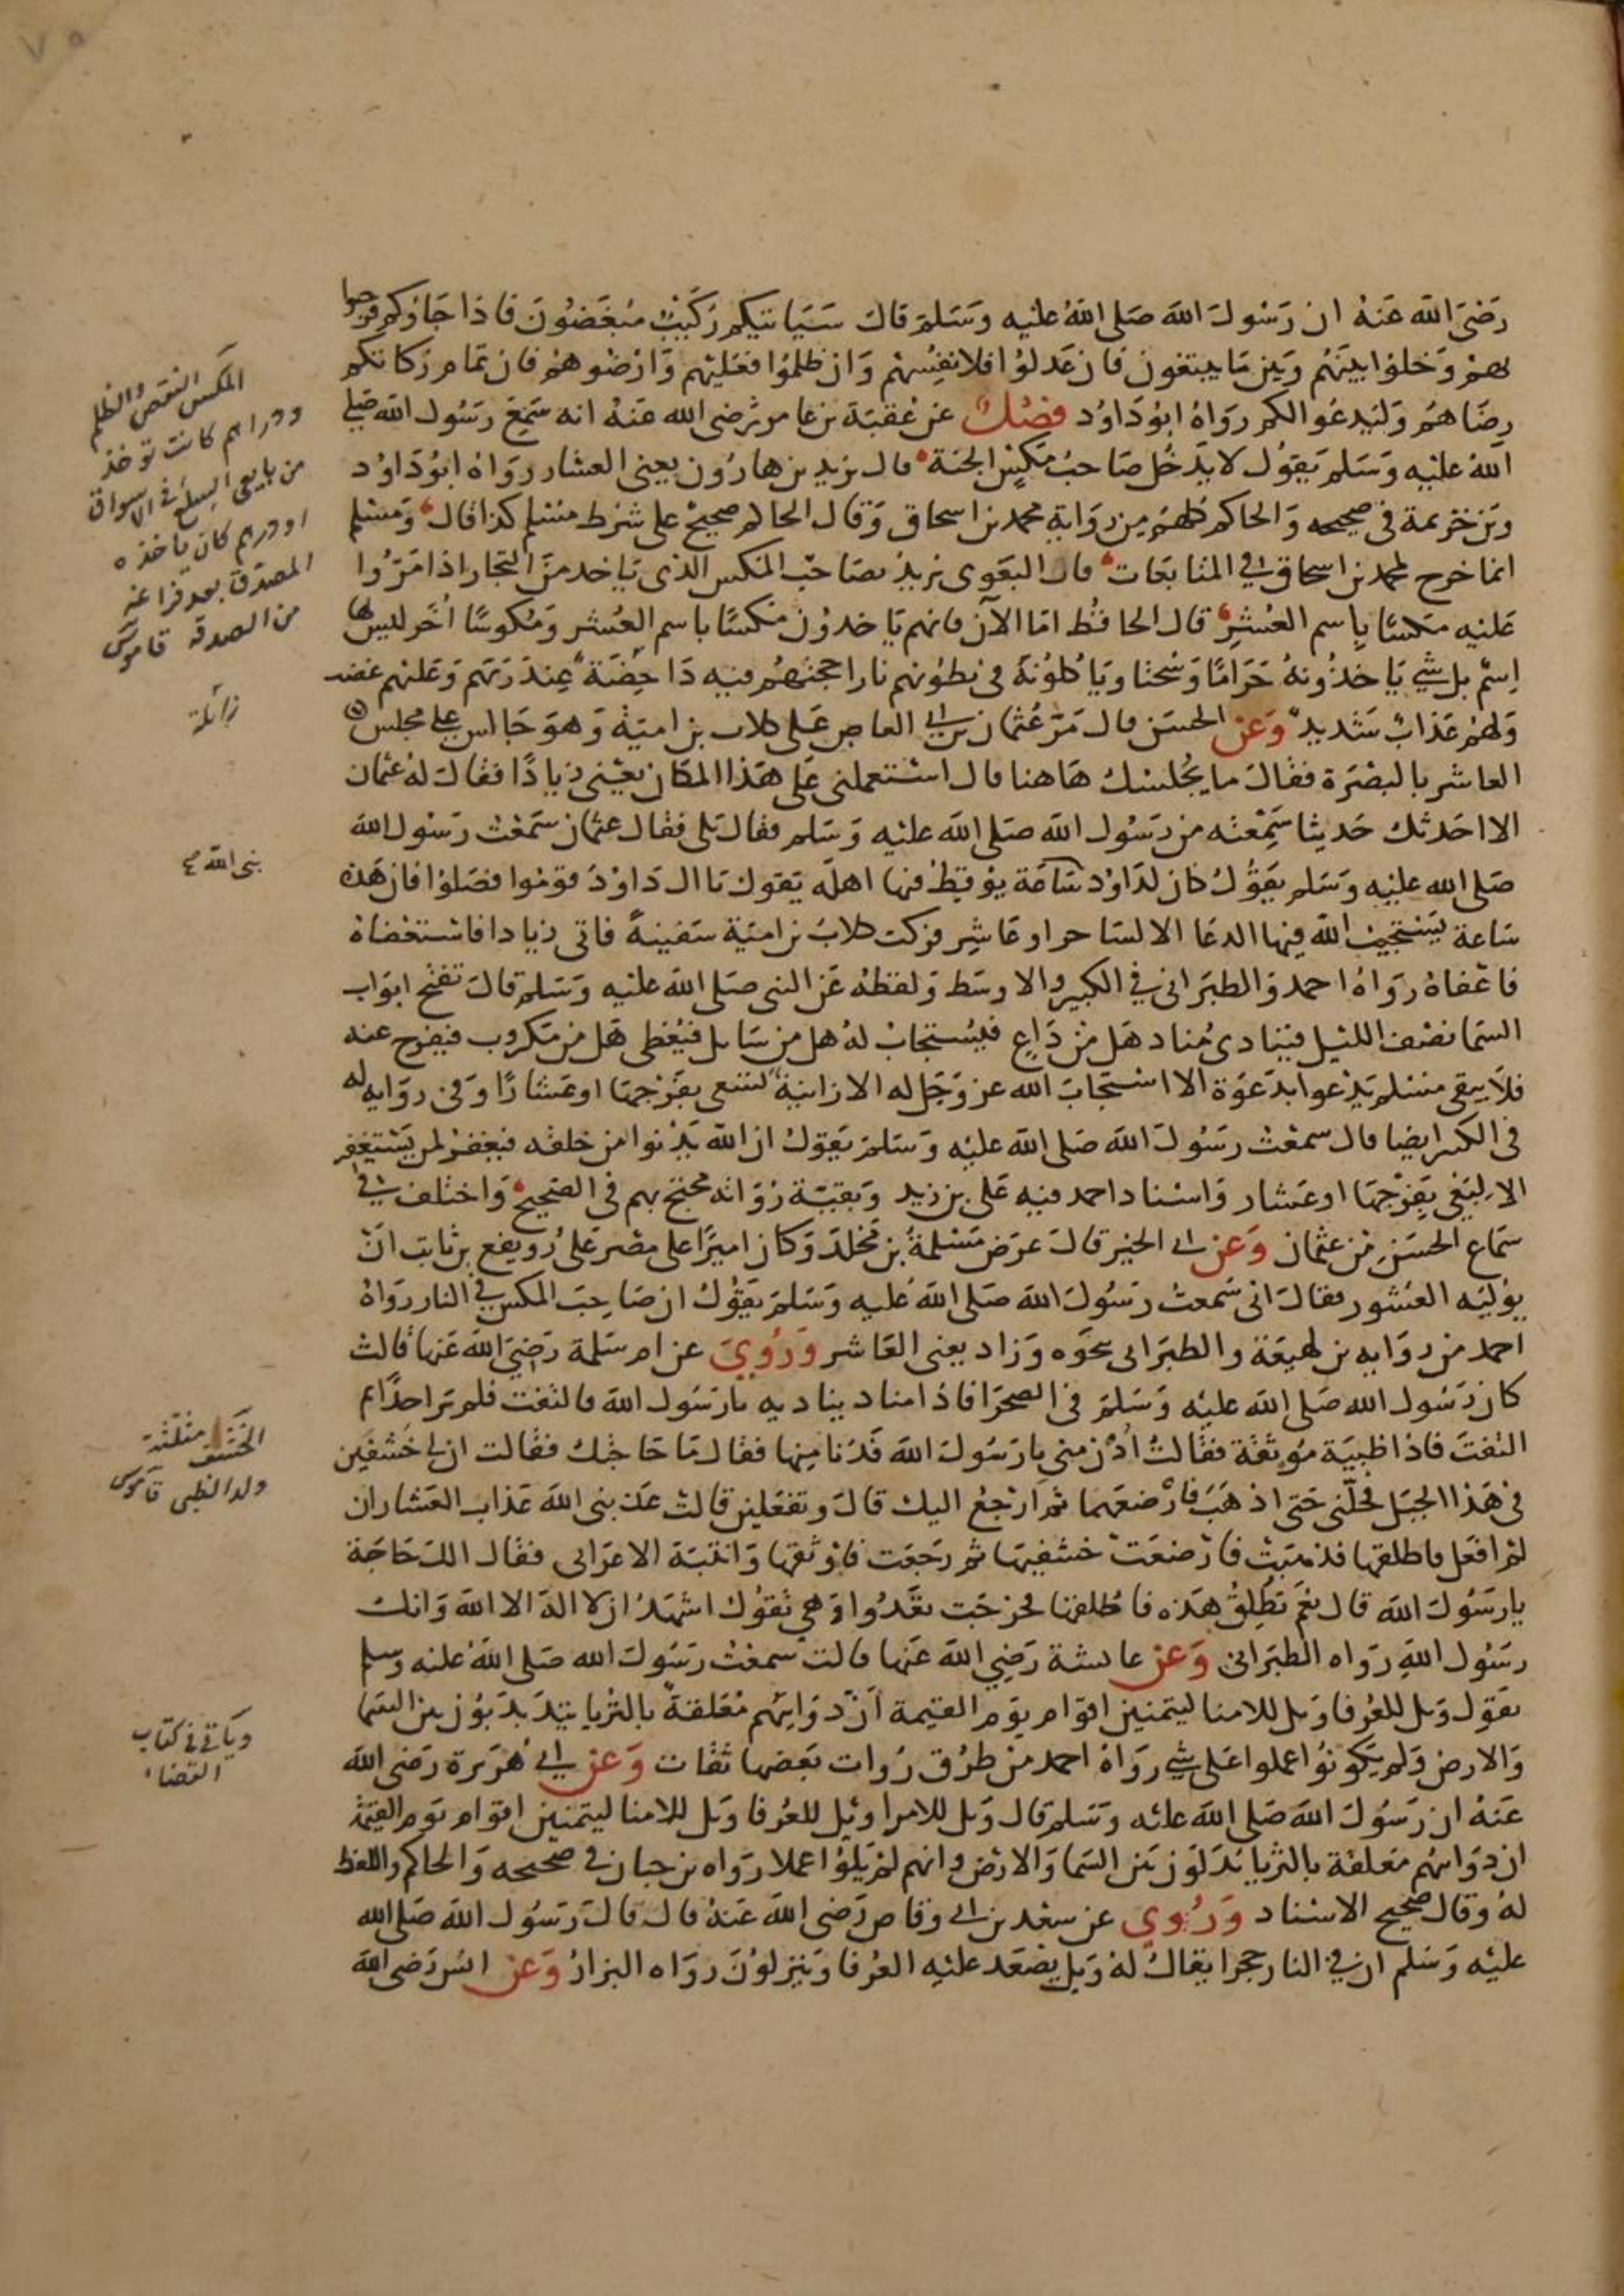 رَضيَ الله عَنهُ ان رَسُولَ الله صَلى اللهُ عَليه وَسَلمَ قالَ سَيَاتيكم رُكَيبٌ مُبَغضُونَ فاذا جَاؤكم فرحبوا
بهمْ وَخلوا بَينَهُم وَبَين مَا يبتغونَ فان عَدلوُا فلانفِسُهمْ وَان ظلمُوا فعَليهم وَارْضُوهمْ فان تمام زكاتكم
رِضَاهُم وَليَدعُوا لكم رَوَاهُ ابوُ دَاوُد فصْلٌ عن عُقبَة بن عامر رضي الله عَنهُ انه سَمِعَ رسُول الله صَلى
اللهُ عليه وَسَلم يَقوُل لا يدخُل صَاحبُ مَكسٍ الجنة قال يزيد بن هارُون يعني العشار رَوَاهُ ابوُ دَاوُد
وَبن خزيمة في صحيحه وَالحاكم كلهم من رِوَاية محمد بن اسحاق وَقال الحاكم صحيح على شرط مسْلم كذا قال وَمسْلم
انما خرج لمحمد بن اسحاق في المتابعات قال البَغوي يُريدُ بصَاحبِ المكس الذي يَاخد منَ التجار اذا مَرُّوا
عَليه مكسًا باسم العُشْرِ قال الحافظ امّا الآن فانهم يَاخدُونَ مكسًا باسم العُشر وَمُكوسًا أخَر ليسَ لها
اِسمٌ بل شيء يَاخذُونهُ حَرَامًا وَسُحتا وَيَاكلونَهُ في بُطونهم نارا حجتهُم فيه دَاحِضَة عندَ رَبهم وَعَلَيهم غضب
وَلهمْ عَذابٌ شَديد وَعَن الحسَن قال مَرّ عُثمان بن ابي العاص عَلى كلاب بن اميَة وَهوَ جَالس على مجلس
العاشر بالبصْرَة فقالَ ما يجُلسُك هَاهنا قال استعملني عَلى هَذا المكان يعْني زيادًا فقالَ لهُ عثمان
الا احَدثك حَديثا سَمِعْته من رَسُول الله صَلى الله عليه وَسَلم فقال بَلى فقال عثمان سَمعْت رَسُول الله
صَلى الله عليه وَسَلم يقوُل كان لدَاوُد سَاعَة يوُقِظ فيها اهلهُ يَقول يَا ال دَاوُدَ قومُوا فصَلوا فان هَذه
سَاعة يَستجيبُ اللهُ فيها الدعَا الا لسَاحر او عَاشِر فركبَ كلابُ بن اميَة سَفينةً فاتى زيادا فاستعْفاهُ
فاعْفاهُ رَوَاهُ احمد وَالطبَراني في الكبير والاوسَط وَلفظهُ عَن النبي صَلى الله عَليه وَسَلم قالَ تفتح ابوَاب
السمَا نصْف الليْل فينادي مُناد هَل منْ دَاعٍ فيُستجابُ لهُ هل من سَايل فيُعْطى هَل من مَكروب فيفرج عنه
فلَا يبقى مسْلم يَدْعوا بدَعوَة الا استجَابَ الله عز وَجَل له الا زانيَة تسْعى بفَرْجهَا او عَشارًا وَفي روَاية له
في الكبير ايضا قال سمعْت رسُولَ الله صَلى الله عليه وَسَلمَ يَقوُل ان الله يَدْنوا من خلقه فيغفرُ لمن يَسْتغفر
الا لِبَغيٍ بِفَرْجهَا او عَشار وَاسْناد احمد فيه عَلي بن زيد وَبقيّة رُوَاته محتج بهم في الصَحيح وَاختلف في
سَمَاع الحسَن من عثمان وَعَن ابي الخير قالَ عرَض مَسْلمةُ بن مخَلد وَكان اميرًا على مصْر عَلى رُوَيفع بن ثابت انْ
يوُليَه العُشور فقالَ اني سَمعتُ رسُولَ الله صَلى الله عَليه وَسَلمَ يَقوُل ان صَاحِبَ المكس في النار رَوَاهُ
احمد من روَايه بن لهيعَة والطبَراني بنحوه وَزاد يعني العَاشر وَرُويَ عن ام سَلمة رَضيَ الله عَنها قالتْ
كان رَسُول الله صَلى الله عليه وَسَلمَ في الصحرَا فاذا مناد يناديه يا رَسُول الله فالتفت فلم يَر احدًا ثم
التفتَ فاذا ظبيَة مُوثقة فقالتْ أدْن مني يا رَسُولَ الله فدَنا منِها فقال مَا حَاجتك فقالت ان لي خشفين
في هَذا الجبَل فحلّني حَتى اذهَبَ فأرْضعَهما ثم ارْجعُ اليك قالَ وَتفعَلين قالتْ عَذبني الله عَذابَ العشار ان
لمْ افعَل فاطلقها فذهبَتْ فارْضعَتْ خشفيهَا ثم رجَعَت فاوْثقها وَانتبَهَ الاعرَابي فقال الكَ حَاجَة
يا رَسُولَ الله قال نعَم تطلقُ هَذه فاطلقها فخرَجَت تعْدُوا وَهي تقوُل اشهَدُ ان لا الهَ الا اللهُ وَانكَ
رسَوُل اللهِ رَوَاه الطبَراني وَعَن عايشة رَضي الله عَنها قالت سمعْتُ رسُولَ الله صَلى اللهُ عليه وَسلم
يَقول وَيل للعُرفا وَيل للامنا ليَتمنين اقوَام يوَم القيمة انّ دَوَايبَهم مُعَلقةً بالثريا يتدَبدَبوُن بين السَما
وَالارض وَلم يَكونوُا عملوا عَلى شي رَوَاهُ احمد من طرُق رُوات بَعضها ثقات وَعن ابي هُرَيرة رَضي الله
عَنهُ ان رَسُولَ الله صَلى الله عليه وَسَلم قال وَيل للامرا وَيْل للعُرفا وَيل للامنا ليَتمنينَ اقوَام يوَم القيمَة
ان ذوَايبهُم مُعَلقة بالثريا يَدَلوَن بَين السَما وَالارض وانهم لمْ يَلوُا عملا رَوَاه بن حبان في صحيحه وَالحاكم واللفظ
لهُ وَقال صحيح الاسناد وَرُوي عن سعْد بن ابي وقاص رَضي الله عَنهُ قال قالَ رَسُول الله صَلى الله
عليه وَسَلم ان في النار حجرا يقالُ لهُ وَيل يصْعَد عليه العُرفا وَينزلوُنَ رَوَاه البزارُ وَعَن انس رَضي الله
المكس النقص والظلم
ودراهم كانت توخذ
من بايعي السلع في الاسواق
او درهم كان ياخذه
المصدق بعد فراغه
من الصدقة قاموس
زائلة
نبي الله ص
الخشف مثلثة
ولد الظبي قاموس
وياتي في كتاب
القضاء